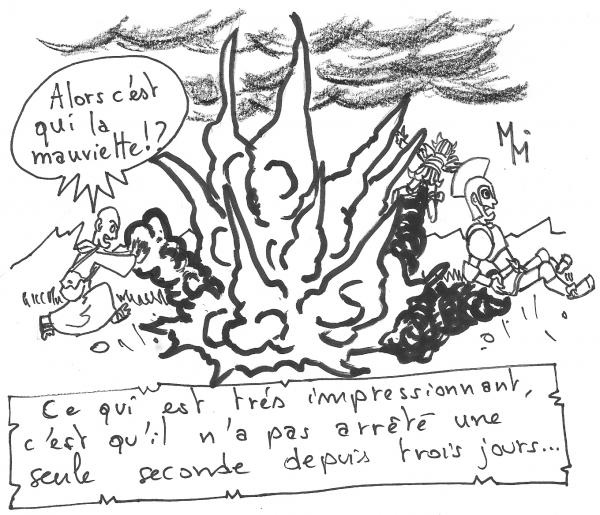 Alors c'est
qui la
mauviette!?
MMi
Ce qui est très impressionnant,
c'est qu'il n'a pas arrêté une
seule seconde depuis trois jours...